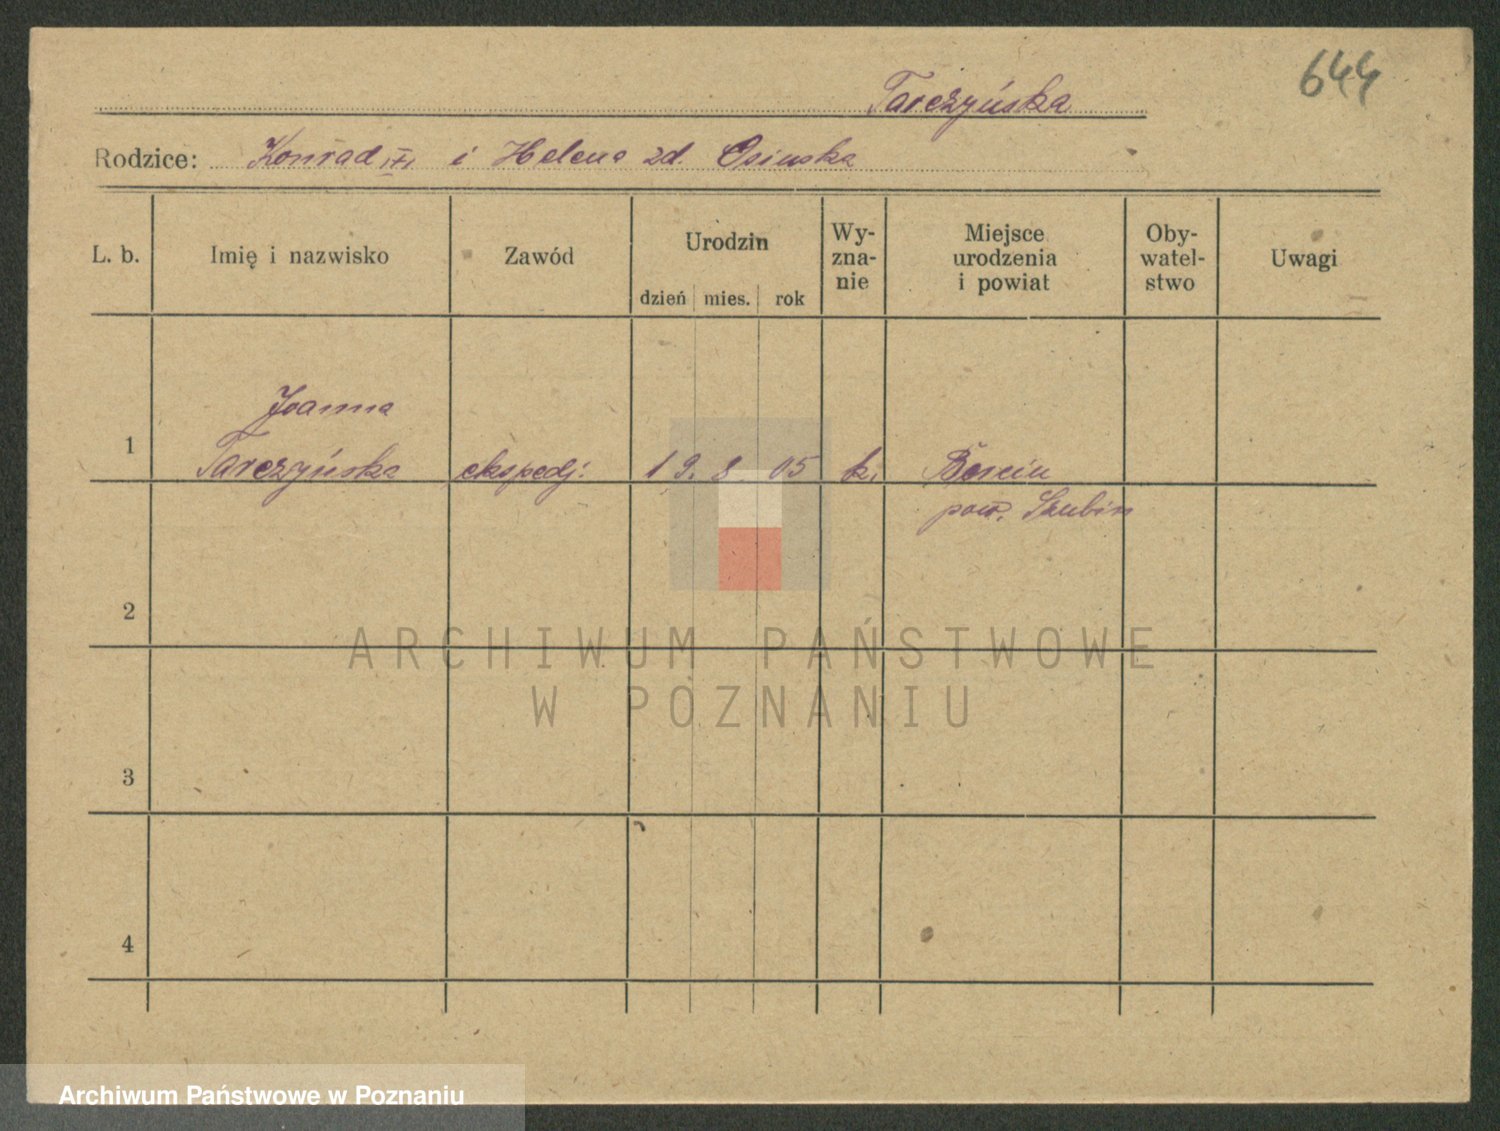 644
Tarczyńska
Rodzice: Konrad i Helena zd. Osinska
L. b. Imię i nazwisko Zawód Urodzin dzień mies. rok Wy-zna-nie Miejsce urodzenia i powiat Oby-watel-stwo Uwagi
Joanna
1 Tarczyńska ekspedj. 19. 8 05 k. Barcin
pow. Szubin
2
ARCHIWUM PAŃSTWOWE
W POZNANIU
3
4
Archiwum Państwowe w Poznaniu